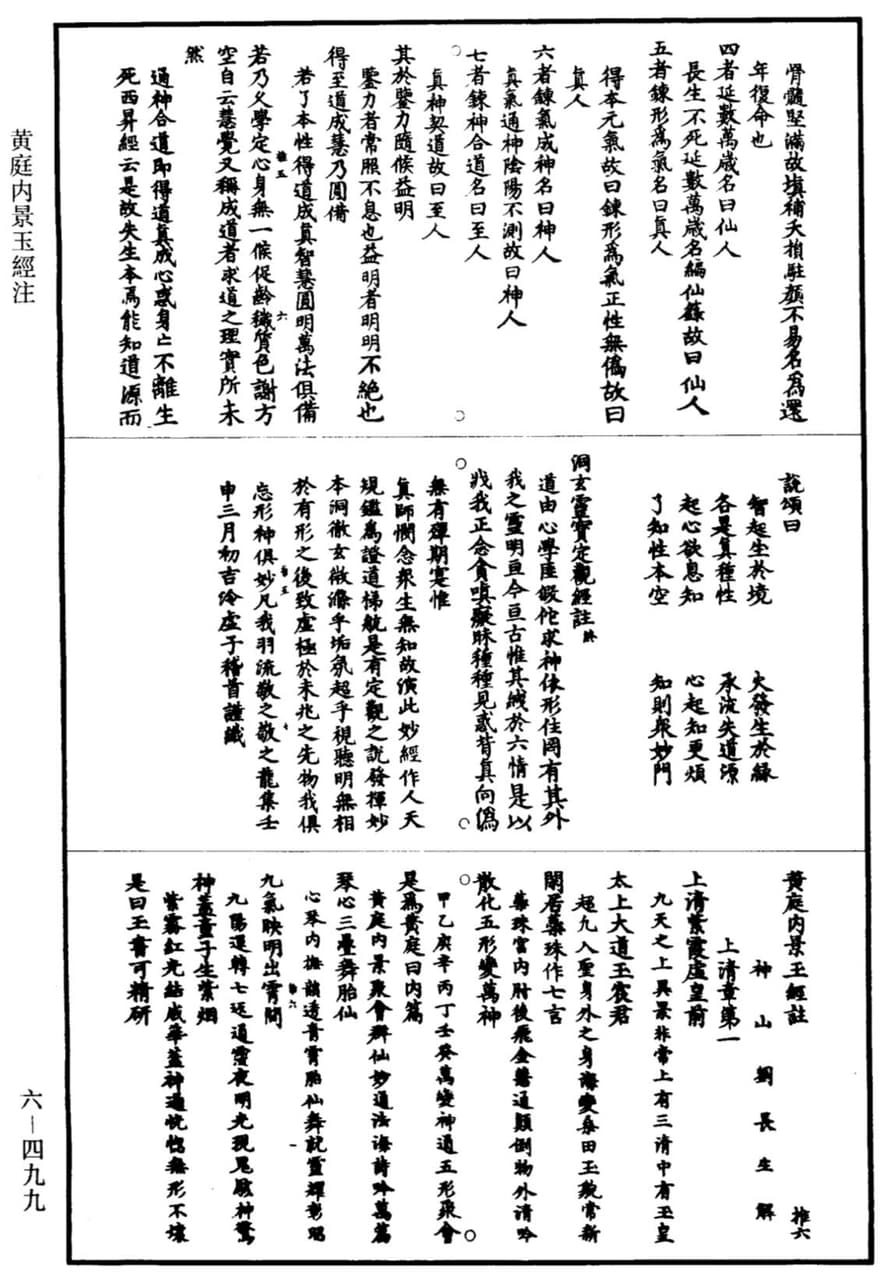 骨髓堅滿故填補夭損駐顏不易名為還
年復命也
四者延數萬歲名曰仙人
長生不死延數萬歲名編仙籙故曰仙人
五者鍊形為氣名曰真人
得本元氣故曰鍊形為氣正性無偽故曰
真人
六者鍊氣成神名曰神人
真氣通神陰陽不測故曰神人
七者鍊神合道名曰至人
真神契道故曰至人
其於鑒力隨候益明
鑒力者常照不息也益明者明明不絕也
得至道成慧乃圓備
若了本性得道成真智慧圓明萬法俱備
若乃久學定心身無一候促齡穢質色謝方
空自云慧覺又稱成道者求道之理實所未
然
通神合道即得道真成心惑身亡不離生
死西昇經云是故失生本焉能知道源而
說頌曰
智起生於境 火發生於緣
各是真種性 承流失道源
起心欲息知 心起知更煩
了知性本空 知則眾妙門
洞玄靈寶定觀經註
道由心學匪假佗求神依形住罔有其外
我之靈明亘今亘古惟其緘於六情是以
戕我正念貪嗔癡昧種種見惑背真向偽
無有殫期寔惟
真師憫念眾生無知故演此妙經作人天
規鑑為證道梯航是有定觀之說發揮妙
本洞徹玄微滌乎垢氛超乎視聽明無相
於有形之後致虛極於未兆之先物我俱
忘形神俱妙凡我羽流敬之敬之龍集壬
申三月初吉泠虛子稽首謹識
黃庭內景玉經註
推六
神山劉長生解
上清章第一
上清紫霞虛皇前
九天之上異景非常上有三清中有玉皇
太上大道玉宸君
超凡入聖身外之身海變桑田玉貌常新
閑居蘂珠作七言
蘂珠宮內肘後飛金醫通顛倒物外清吟
散化五形變萬神
甲乙庚辛丙丁壬癸萬變神通五形聚會
是為黃庭曰內篇
黃庭內景聚會群仙妙通法海詩吟萬篇
琴心三疊舞胎仙
心琴內撫韻透青霄胎仙舞就靈耀彰昭
九氣映明出霄間
九陽運轉七返通靈夜明光現鬼駭神驚
神蓋童子生紫烟
紫霧紅光結成華蓋神通恍惚無形不壞
是曰玉書可精研
黄庭内景玉經注
六-四九九